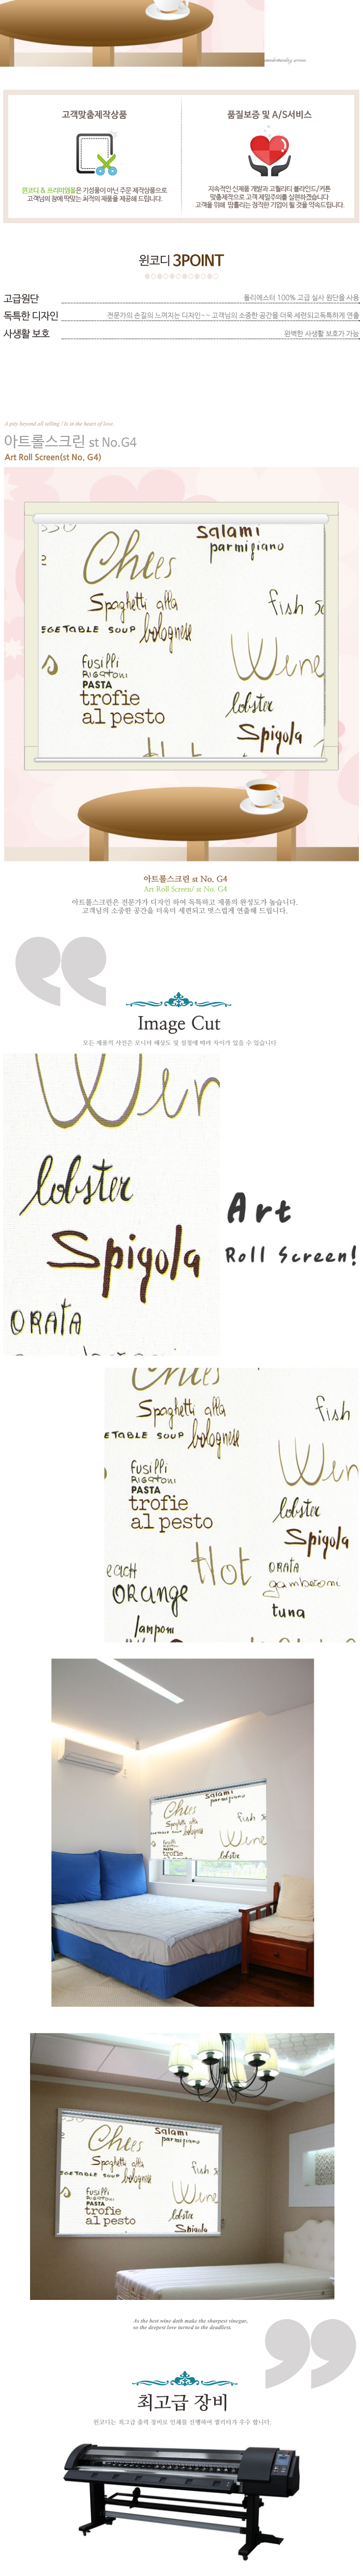 understanding screen.
고객맞춤제작상품
윈코디 & 프리미엄울은 기성품이 아닌 주문 제작상품으로
고객님의 창에 딱맞는 최적의 제품을 제공해 드립니다.
품질보증 및 A/S서비스
지속적인 신제품 개발과 고퀄리티 블라인드/커튼
맞춤제작으로 고객 제일주의를 실현하겠습니다
고객을 위해 땀흘리는 정직한 기업이 될 것을 약속드립니다.
윈코디 3POINT
고급원단 폴리에스터 100% 고급 실사 원단을 사용
독특한 디자인 전문가의 손길의 느껴지는 디자인~~ 고객님의 소중한 공간을 더욱 세련되고독특하게 연출
사생활 보호 완벽한 사생활 보호가 가능
A pity beyond all telling / Is in the heart of love.
아트롤스크린 st No.G4
Art Roll Screen(st No, G4)
Salami
parmigiano
Chees
Spaghetti alla
bolognese
fish
EGETABLE SOUP
Wine
fusilli
RIGATONI
PASTA
trofie
al pesto
lobster
Spigola
아트롤스크린 st No, G4
Art Roll Screen/ st No. G4
아트롤스크린은 전문가가 디자인 하여 독특하고 제품의 완성도가 높습니다.
고객님의 소중한 공간을 더욱더 세련되고 멋스럽게 연출해 드립니다.
Image Cut
모든 제품의 사진은 모니터 해상도 및 설정에 따라 차이가 있을 수 있습니다
lobster
Spigola
ORATA
Art
Roll Screen!
Chees
Spaghetti alla
bolognese
fish
ETABLE SOUP
fusilli
RIGATONI
PASTA
trofie
al pesto
lobster
Spigola
Hot
ORANGE
ORATA
gamberoni
tuna
lampone
Salami
parmigiano
Chees
Spaghetti alla
bolognese
fish
Wine
fusilli
RIGATONI
PASTA
trofie
Salami
parmigiano
Chees
Spaghetti alla
bolognese
fish
EGETABLE SOUP
Wine
fusilli
RIGATONI
PASTA
trofie
al pesto
lobster
Spigola
As the best wine doth make the sharpest vinegar,
so the deepest love turned to the deadliest.
최고급 장비
윈코디는 최고급 출력 장비로 인쇄를 진행하여 퀄리티가 우수 합니다.